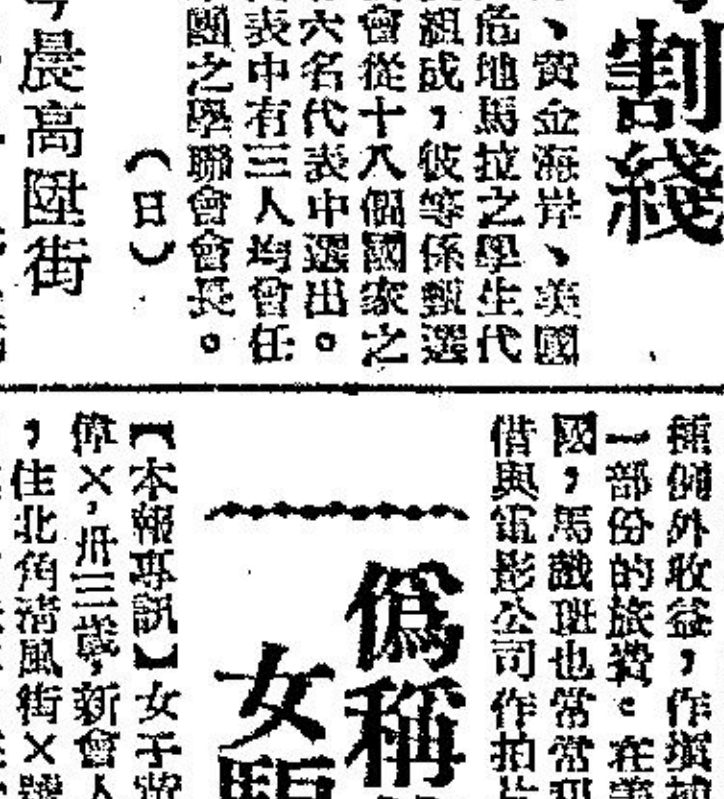 割綫
、黃金海岸、美國
危地馬拉之學生代
組成，彼等係甄選
會從十八個國家之
六名代表中選出。
表中有三人均曾任
團之學聯會會長。
（日）
晨高陞街
種例外收益，作塡補
一部份的旅費。在
國，馬戲班也常常
借與電影公司作拍片
偽稱
女騙
【本報專訊】女子
偉×，卅三歲，新會人
，住北角清風街×號